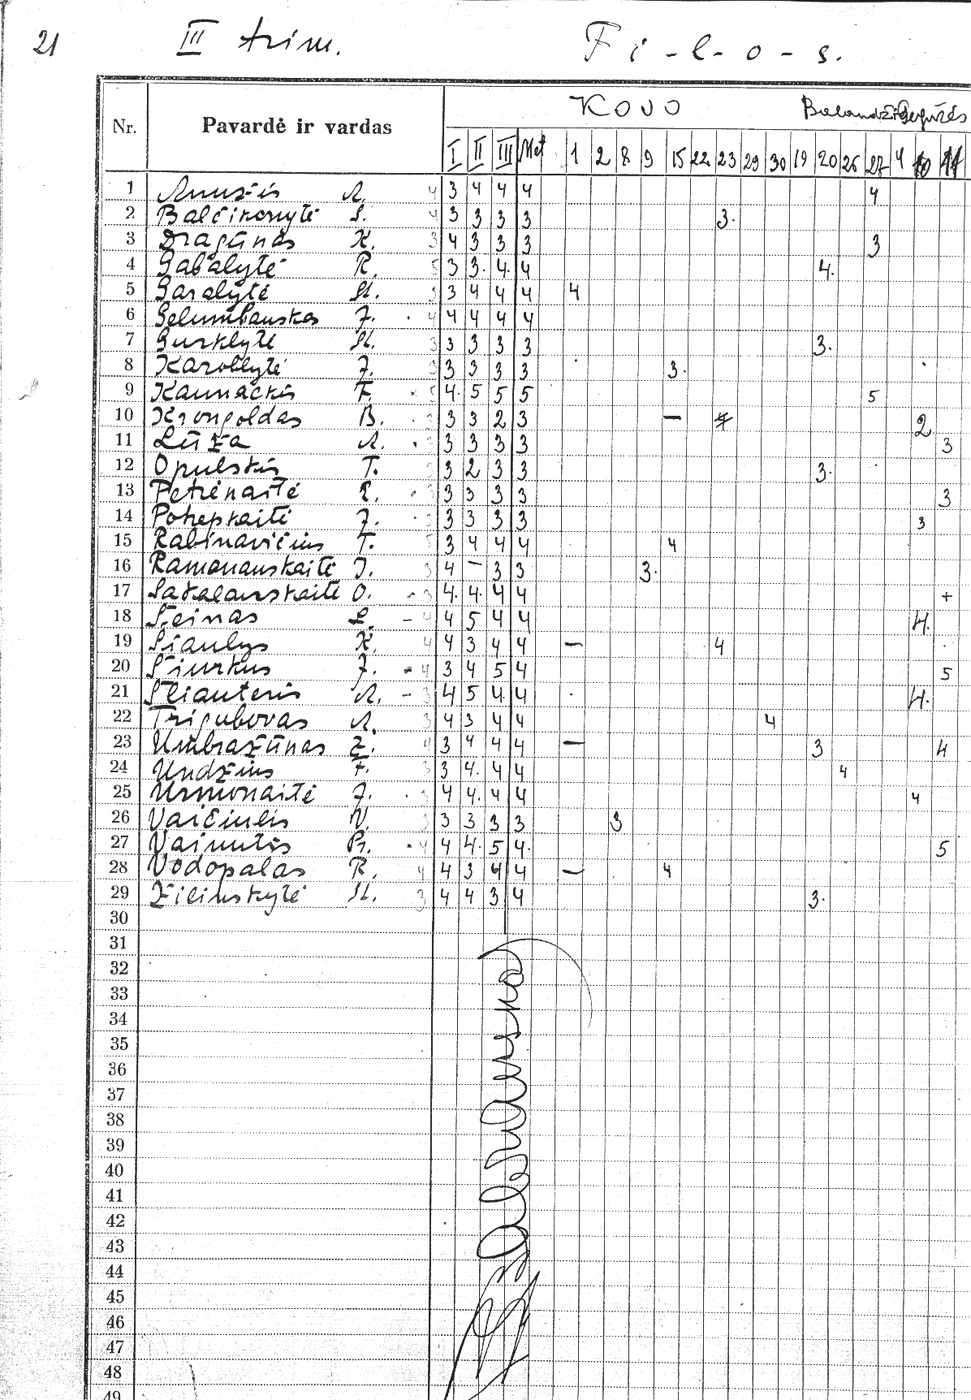 21 III trim. F-i-l-o-s.
Nr. Pavardė ir vardas Kovo Balandžio Gegužės
I II III Met 1 2 8 9 15 22 23 29 30 19 20 26 27 4 10 11
1 A. 4 3 4 4 4 4
2 Balčikonytė S. 4 3 3 3 3 3.
3 Dragūnas K. 3 4 3 3 3 3
4 Gabalytė R. 5 3 3. 4. 4 4.
5 Garalytė St. 3 3 4 4 4 4
6 J. 4 4 4 4 4
7 Gurklytė St. 3 3 3 3 3 3.
8 Karoblytė J. 3 3 3 3 3 3.
9 F. 5 4. 5 5 5 5
10 Krongoldas B. 3 3 3 2 3 – 2
11 Lūža A. 3 3 3 3 3 3
12 Opulskis T. 3 3 2 3 3 3.
13 Petrėnaitė 3 3 3 3 3 3
14 J. 3 3 3 3 3 3
15 Rabinavičius T. 5 3 4 4 4 4
16 Ramanauskaitė J. 3 4 – 3 3 3.
17 Sakalauskaitė O. 3 4. 4. 4 4 +
18 Šeinas L. – 4 4 5 4 4 4.
19 Šiaulys K. 4 4 3 4 4 – 4
20 Šiurkus J. – 4 3 4 5 4 5
21 Šliauteris A. – 3 4 5 4 4 4.
22 Trigubovas A. 3 4 3 4 4 4
23 Umbražūnas Z. 4 3 4 4 4 – 3 4
24 Undžius F. 3 3 4. 4 4 4
25 J. 3 4 4. 4 4 4
26 Vaičiulis V. 3 3 3 3 3 3
27 Vainutis Pr. 4 4 4. 5 4. 5
28 Vodopalas R. 4 4 3 4 4 – 4
29 Žilinskytė St. 3 4 4 3 4 3.
30
31
32
33
34
35
36
37
38
39
40
41
42
43
44
45
46
47
48
49